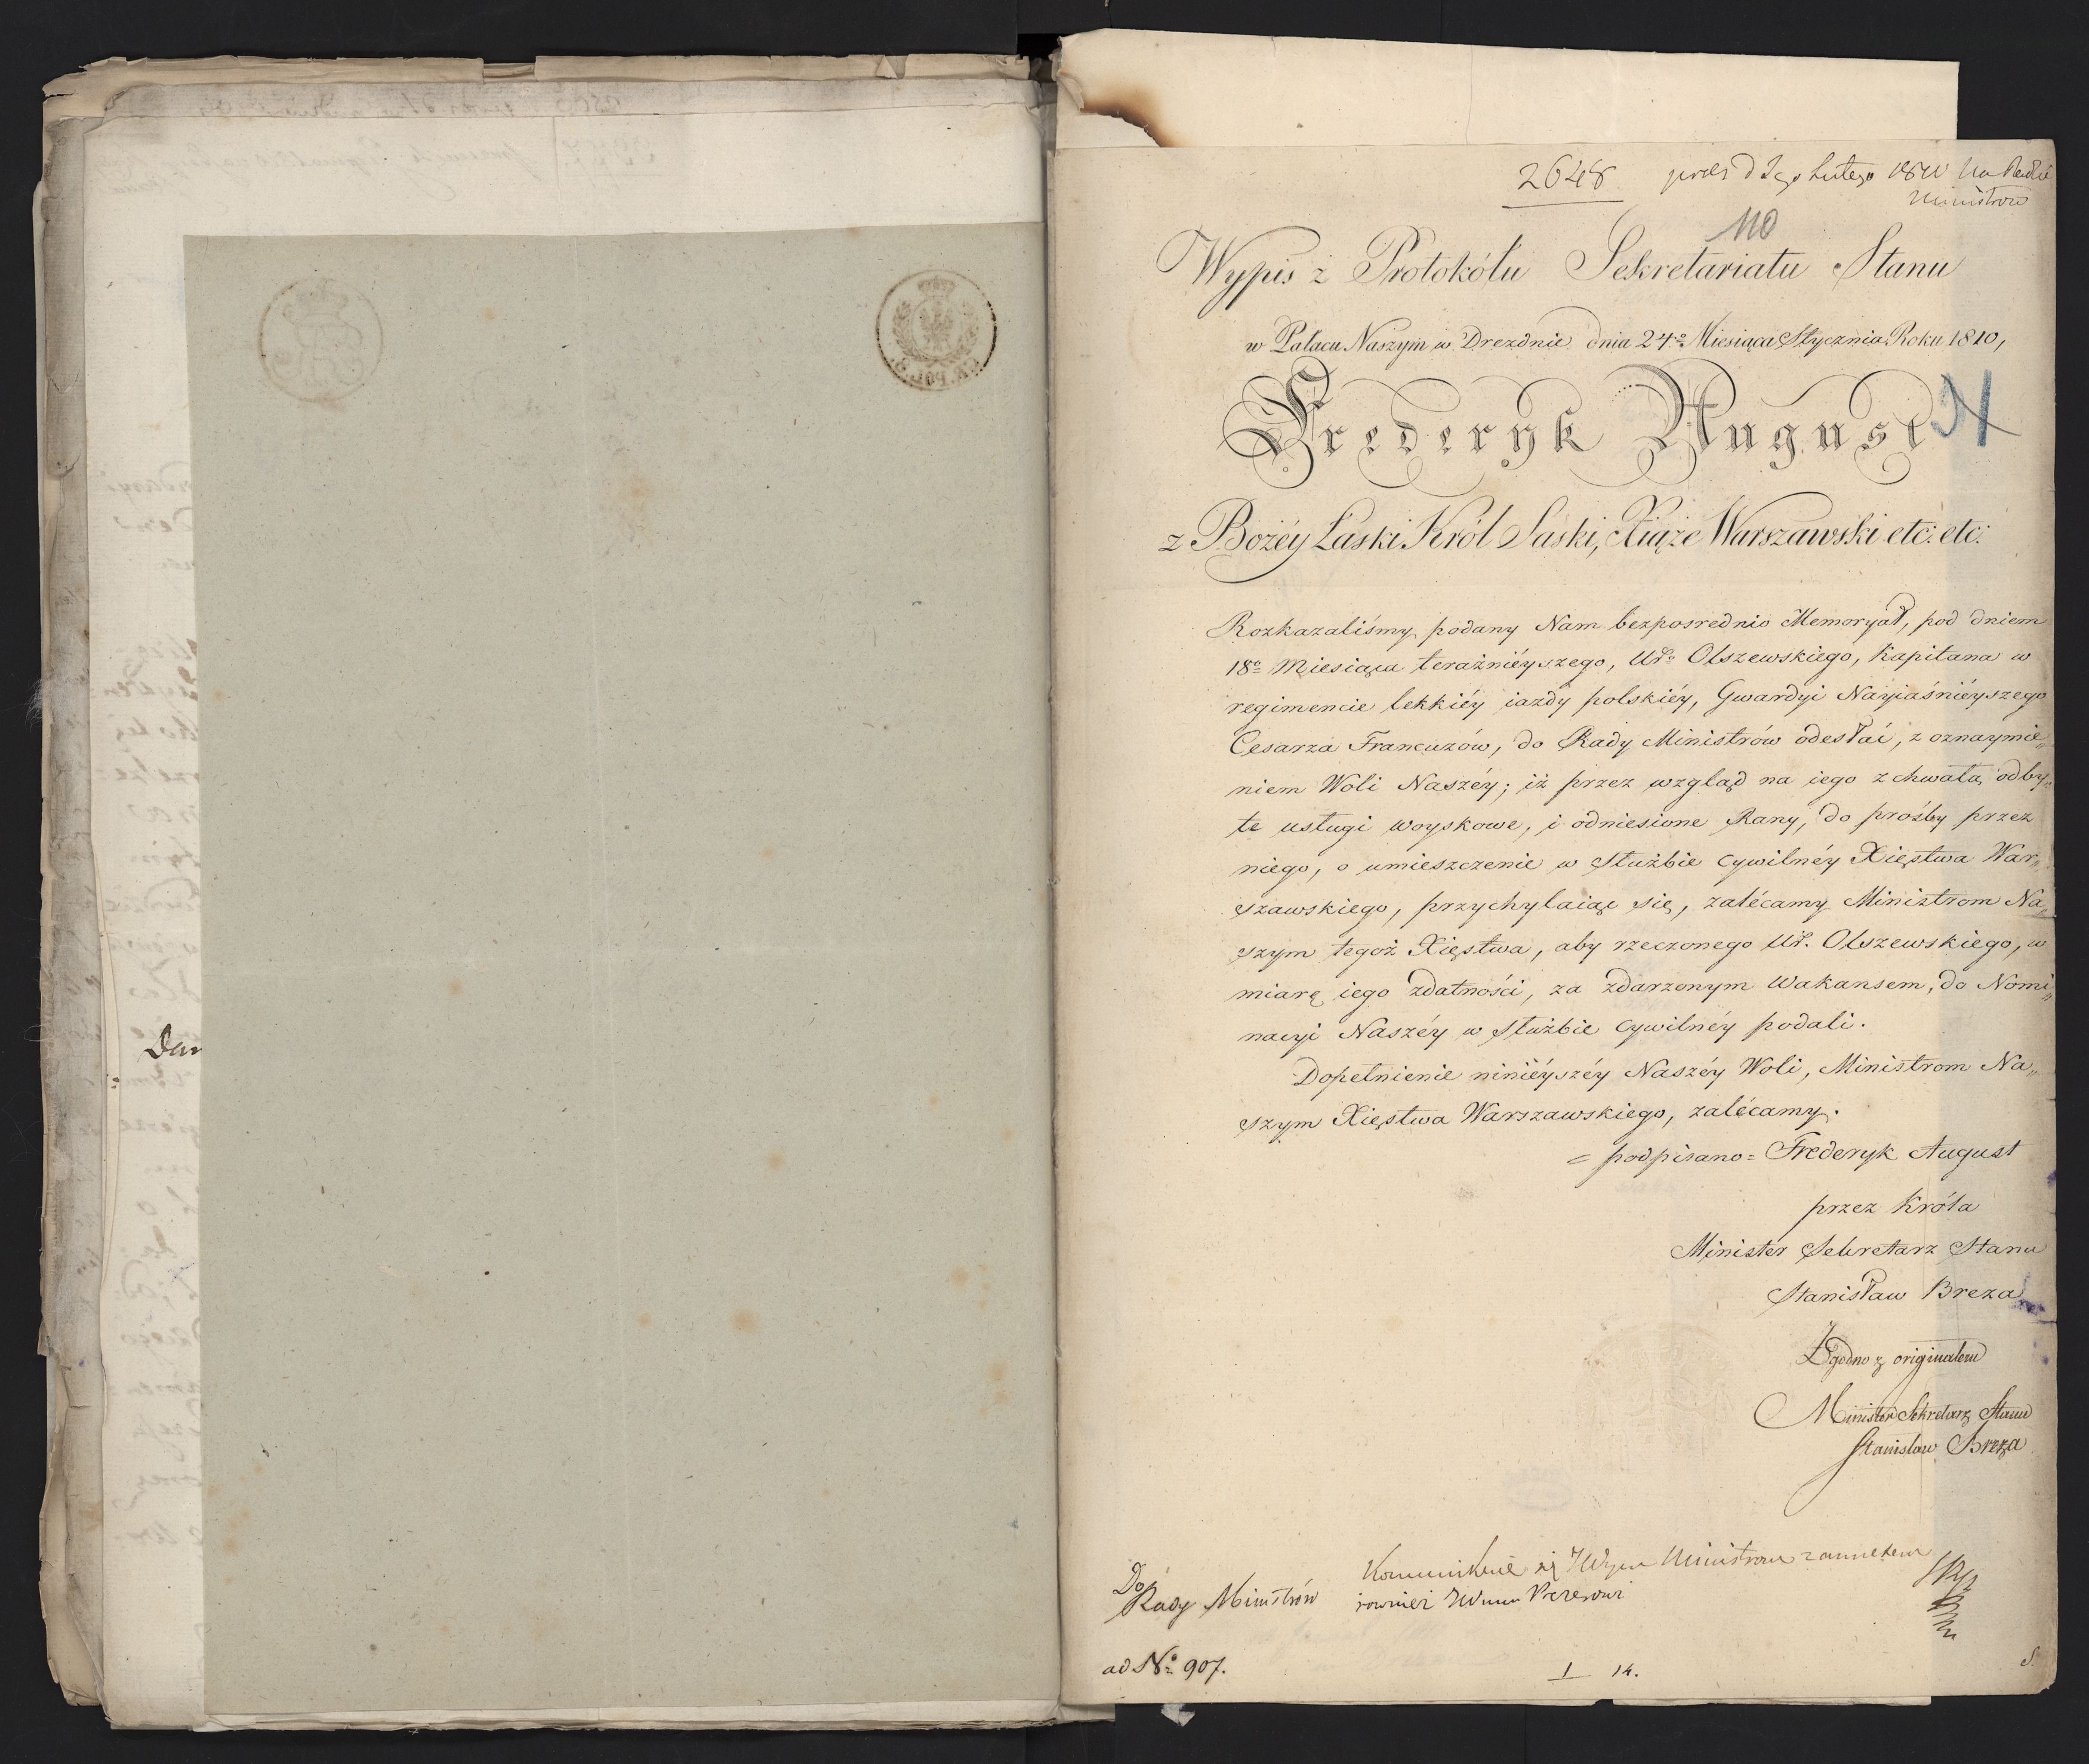 Dan
2648 prez d 2go Lutego 1810 Na Radzie
Ministrów
110
Wypis z Protokółu Sekretariatu Stanu
w Pałacu Naszym w Dreźnie dnia 24º Miesiąca Stycznia Roku 1810,
Frederyk August
z Bożéy Łaski Król Saski, Xiąże Warszawski etc: etc:
Rozkazaliśmy, podany Nam bezposrednio Memoryał, pod dniem
18º Miesiąca teraźniéyszego, Urº Olszewskiego, Kapitana w
regimencie lekkiéy iazdy polskiéy, Gwardyi Nayiaśniéyszego
Cesarza Francuzów, do Rady Ministrów odesłać, z oznaymie„
niem Woli Naszéy; iż przez wzgląd na iego z chwałą odby„
te usługi woyskowe, i odniesione Rany, do prośby przez
niego, o umieszczenie w Służbie cywilnéy Xięstwa War„
szawskiego, przychylaiąc się, zalécamy Ministrom Na„
szym tegoż Xięstwa, aby rzeczonego Ur. Olszewskiego, w
miarę iego zdatności, za zdarzonym Wakansem, do Nomi„
nacyi Naszéy w służbie cywilnéy podali.
Dopełnienie niniéyszéy Naszéy Woli, Ministrom Na„
szym Xięstwa Warszawskiego, zalécamy.
= podpisano = Frederyk August
przez Króla
Minister Sekretarz Stanu
Stanisław Breza
Zgodno z originałem
Minister Sekretarz Stanu
Stanisław Breza
Do
Rady Ministrów
Kommunikuie się JWym Ministrom z annexem
rownież JWmu Prezesowi
ad Nº 907.
1 14.